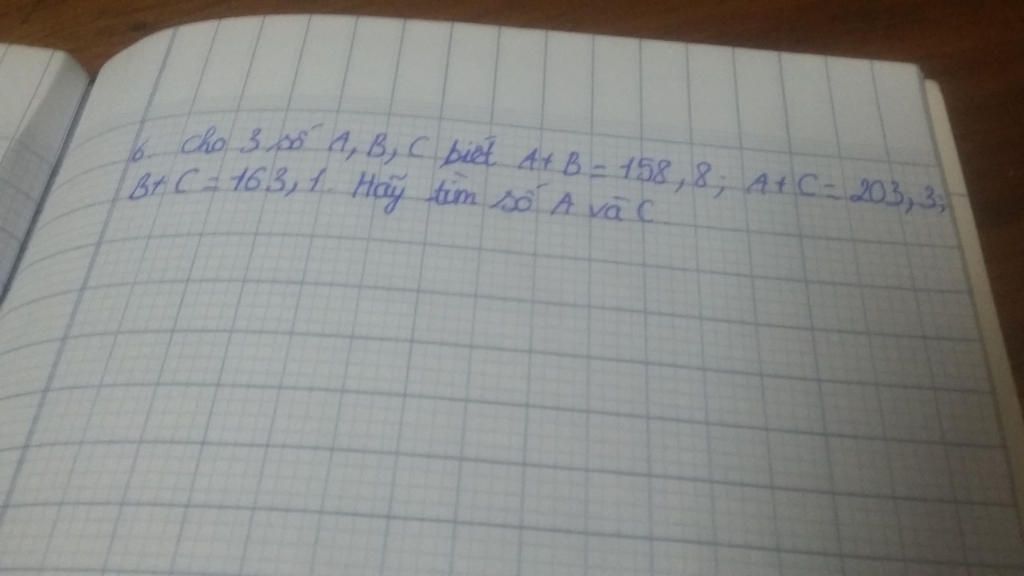 6. Cho 3 số A, B, C biết A+B = 158,8; A+C = 203,3;
B+C = 163,1. Hãy tìm số A và C